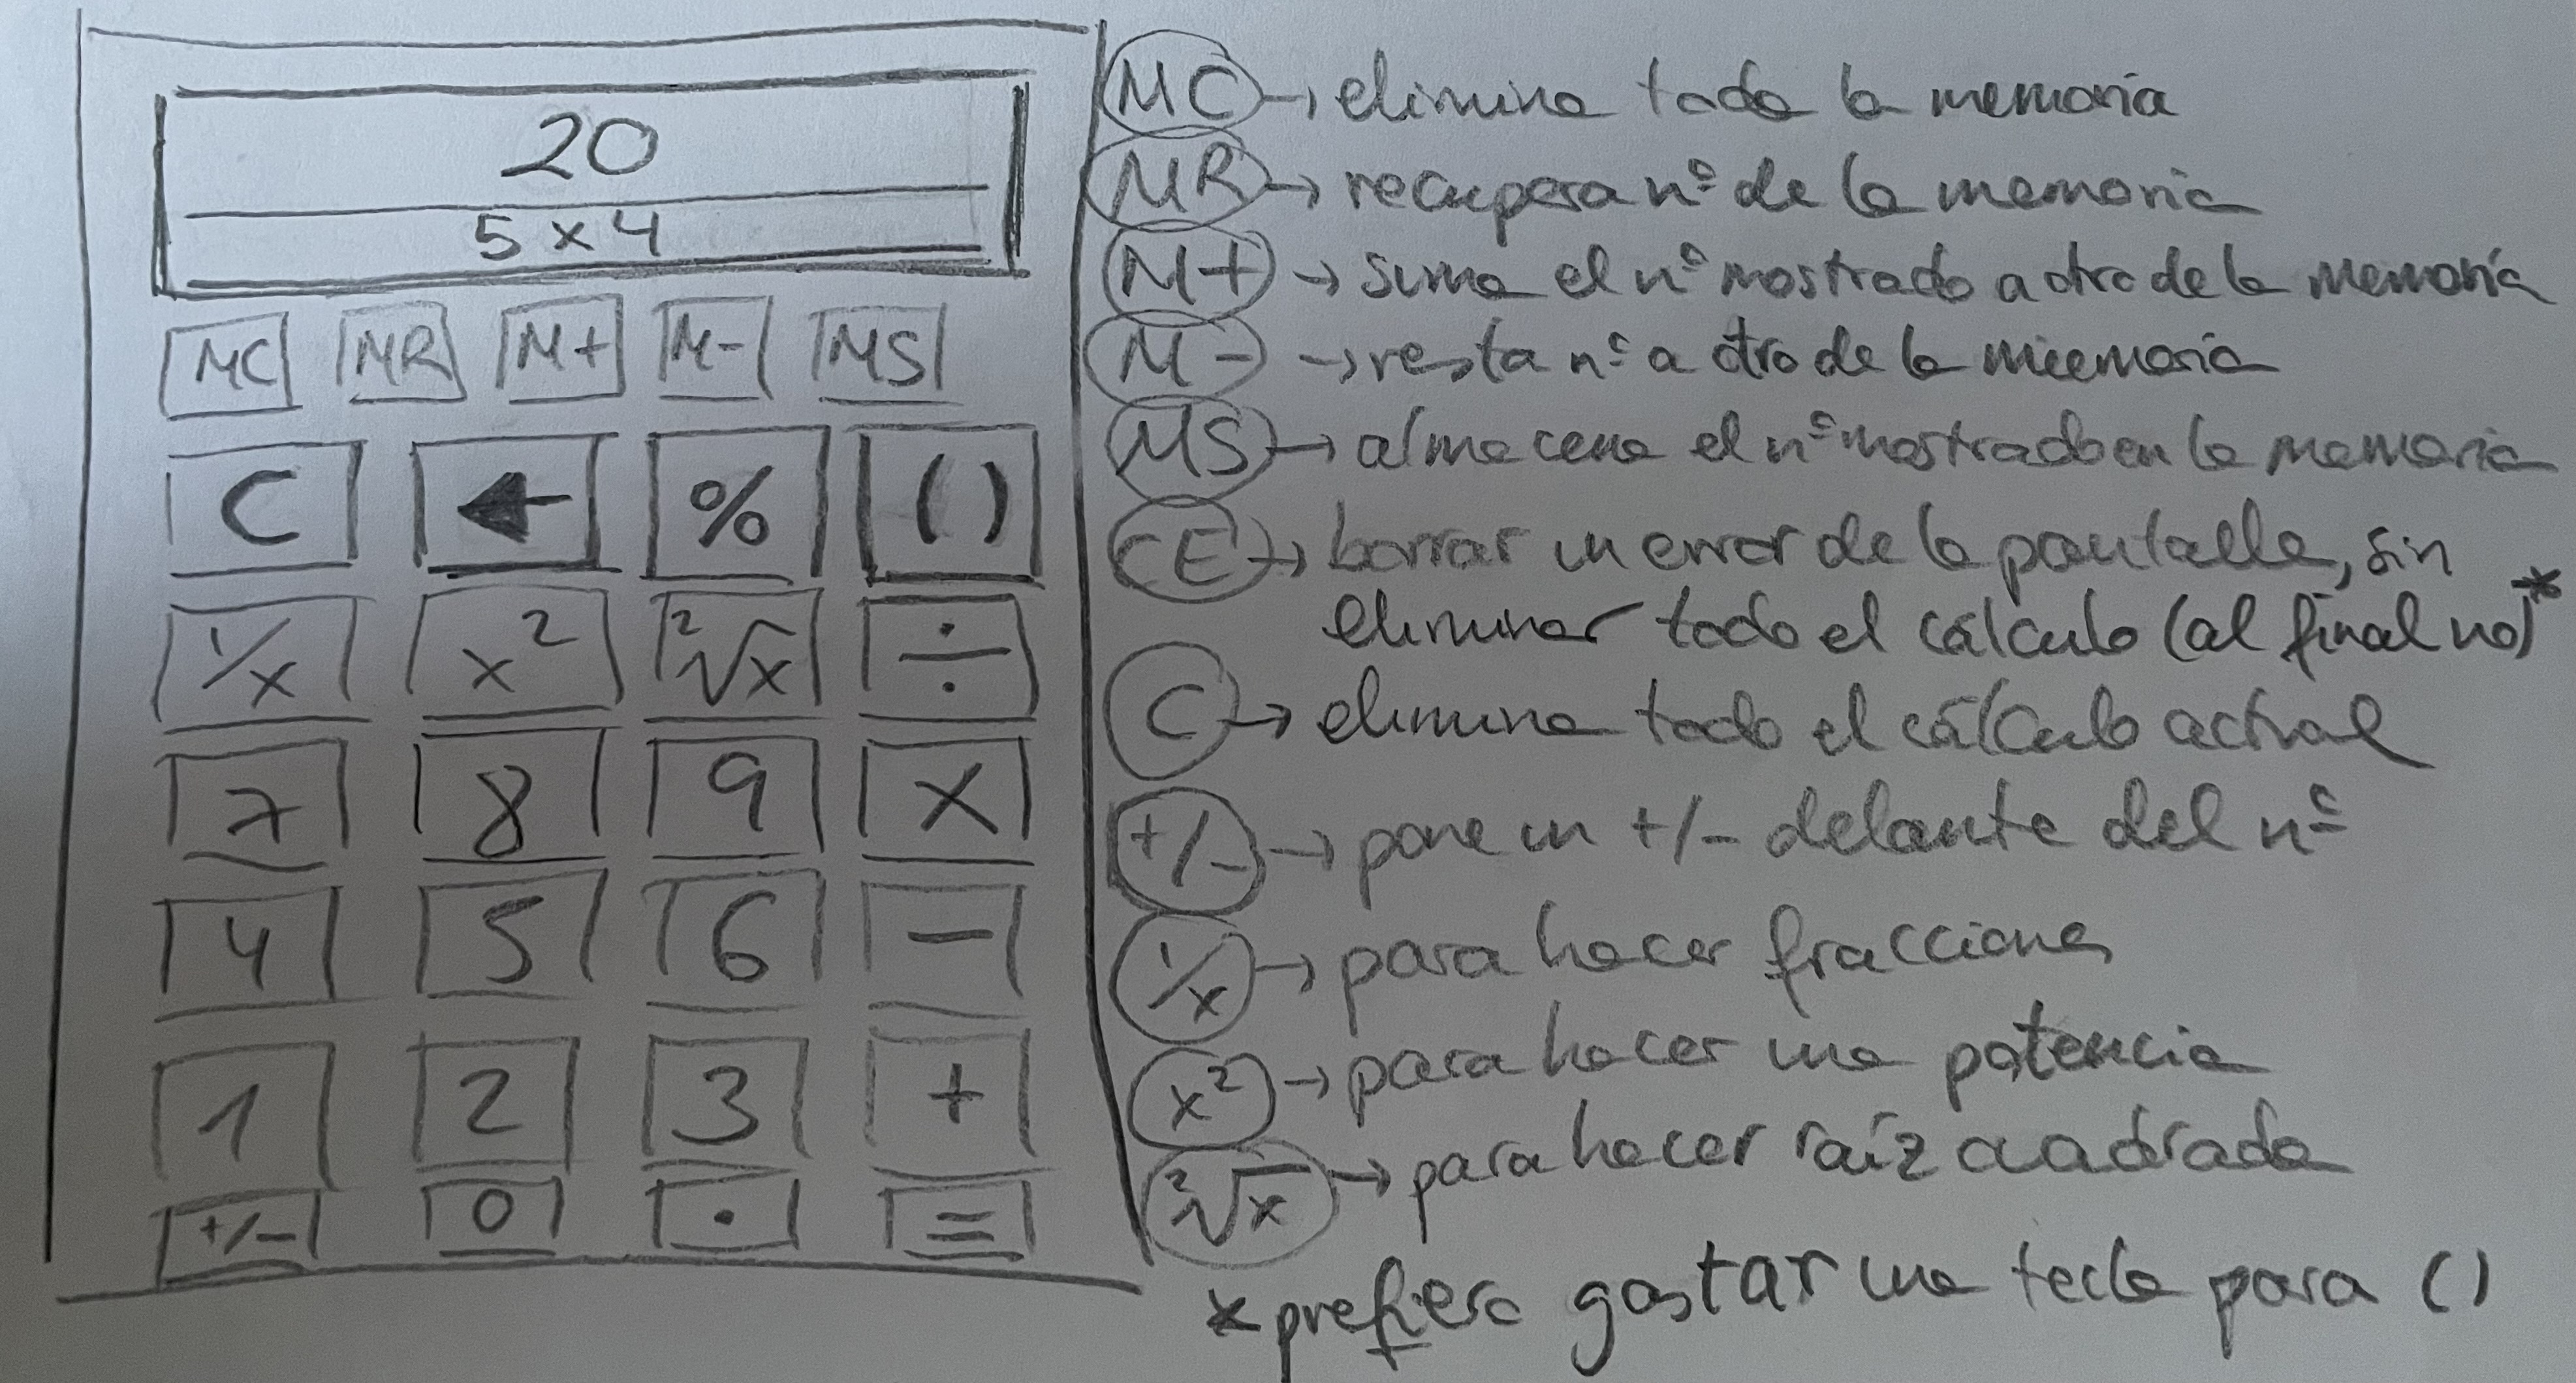 20
5 x 4
MC MR M+ M- MS
C ← % ( )
1/x x² ²√x ÷
7 8 9 x
4 5 6 -
1 2 3 +
+/- 0 . =
MC → elimina toda la memoria
MR → recupera nº de la memoria
M+ → suma el nº mostrado a otro de la memoria
M- → resta nº a otro de la memoria
MS → almacena el nº mostrado en la memoria
CE → borrar un error de la pantalla, sin
eliminar todo el cálculo (al final no)*
C → elimina todo el cálculo actual
+/- → pone un +/- delante del nº
1/x → para hacer fracciones
x² → para hacer una potencia
²√x → para hacer raíz cuadrada
* prefiero gastar una tecla para ( )